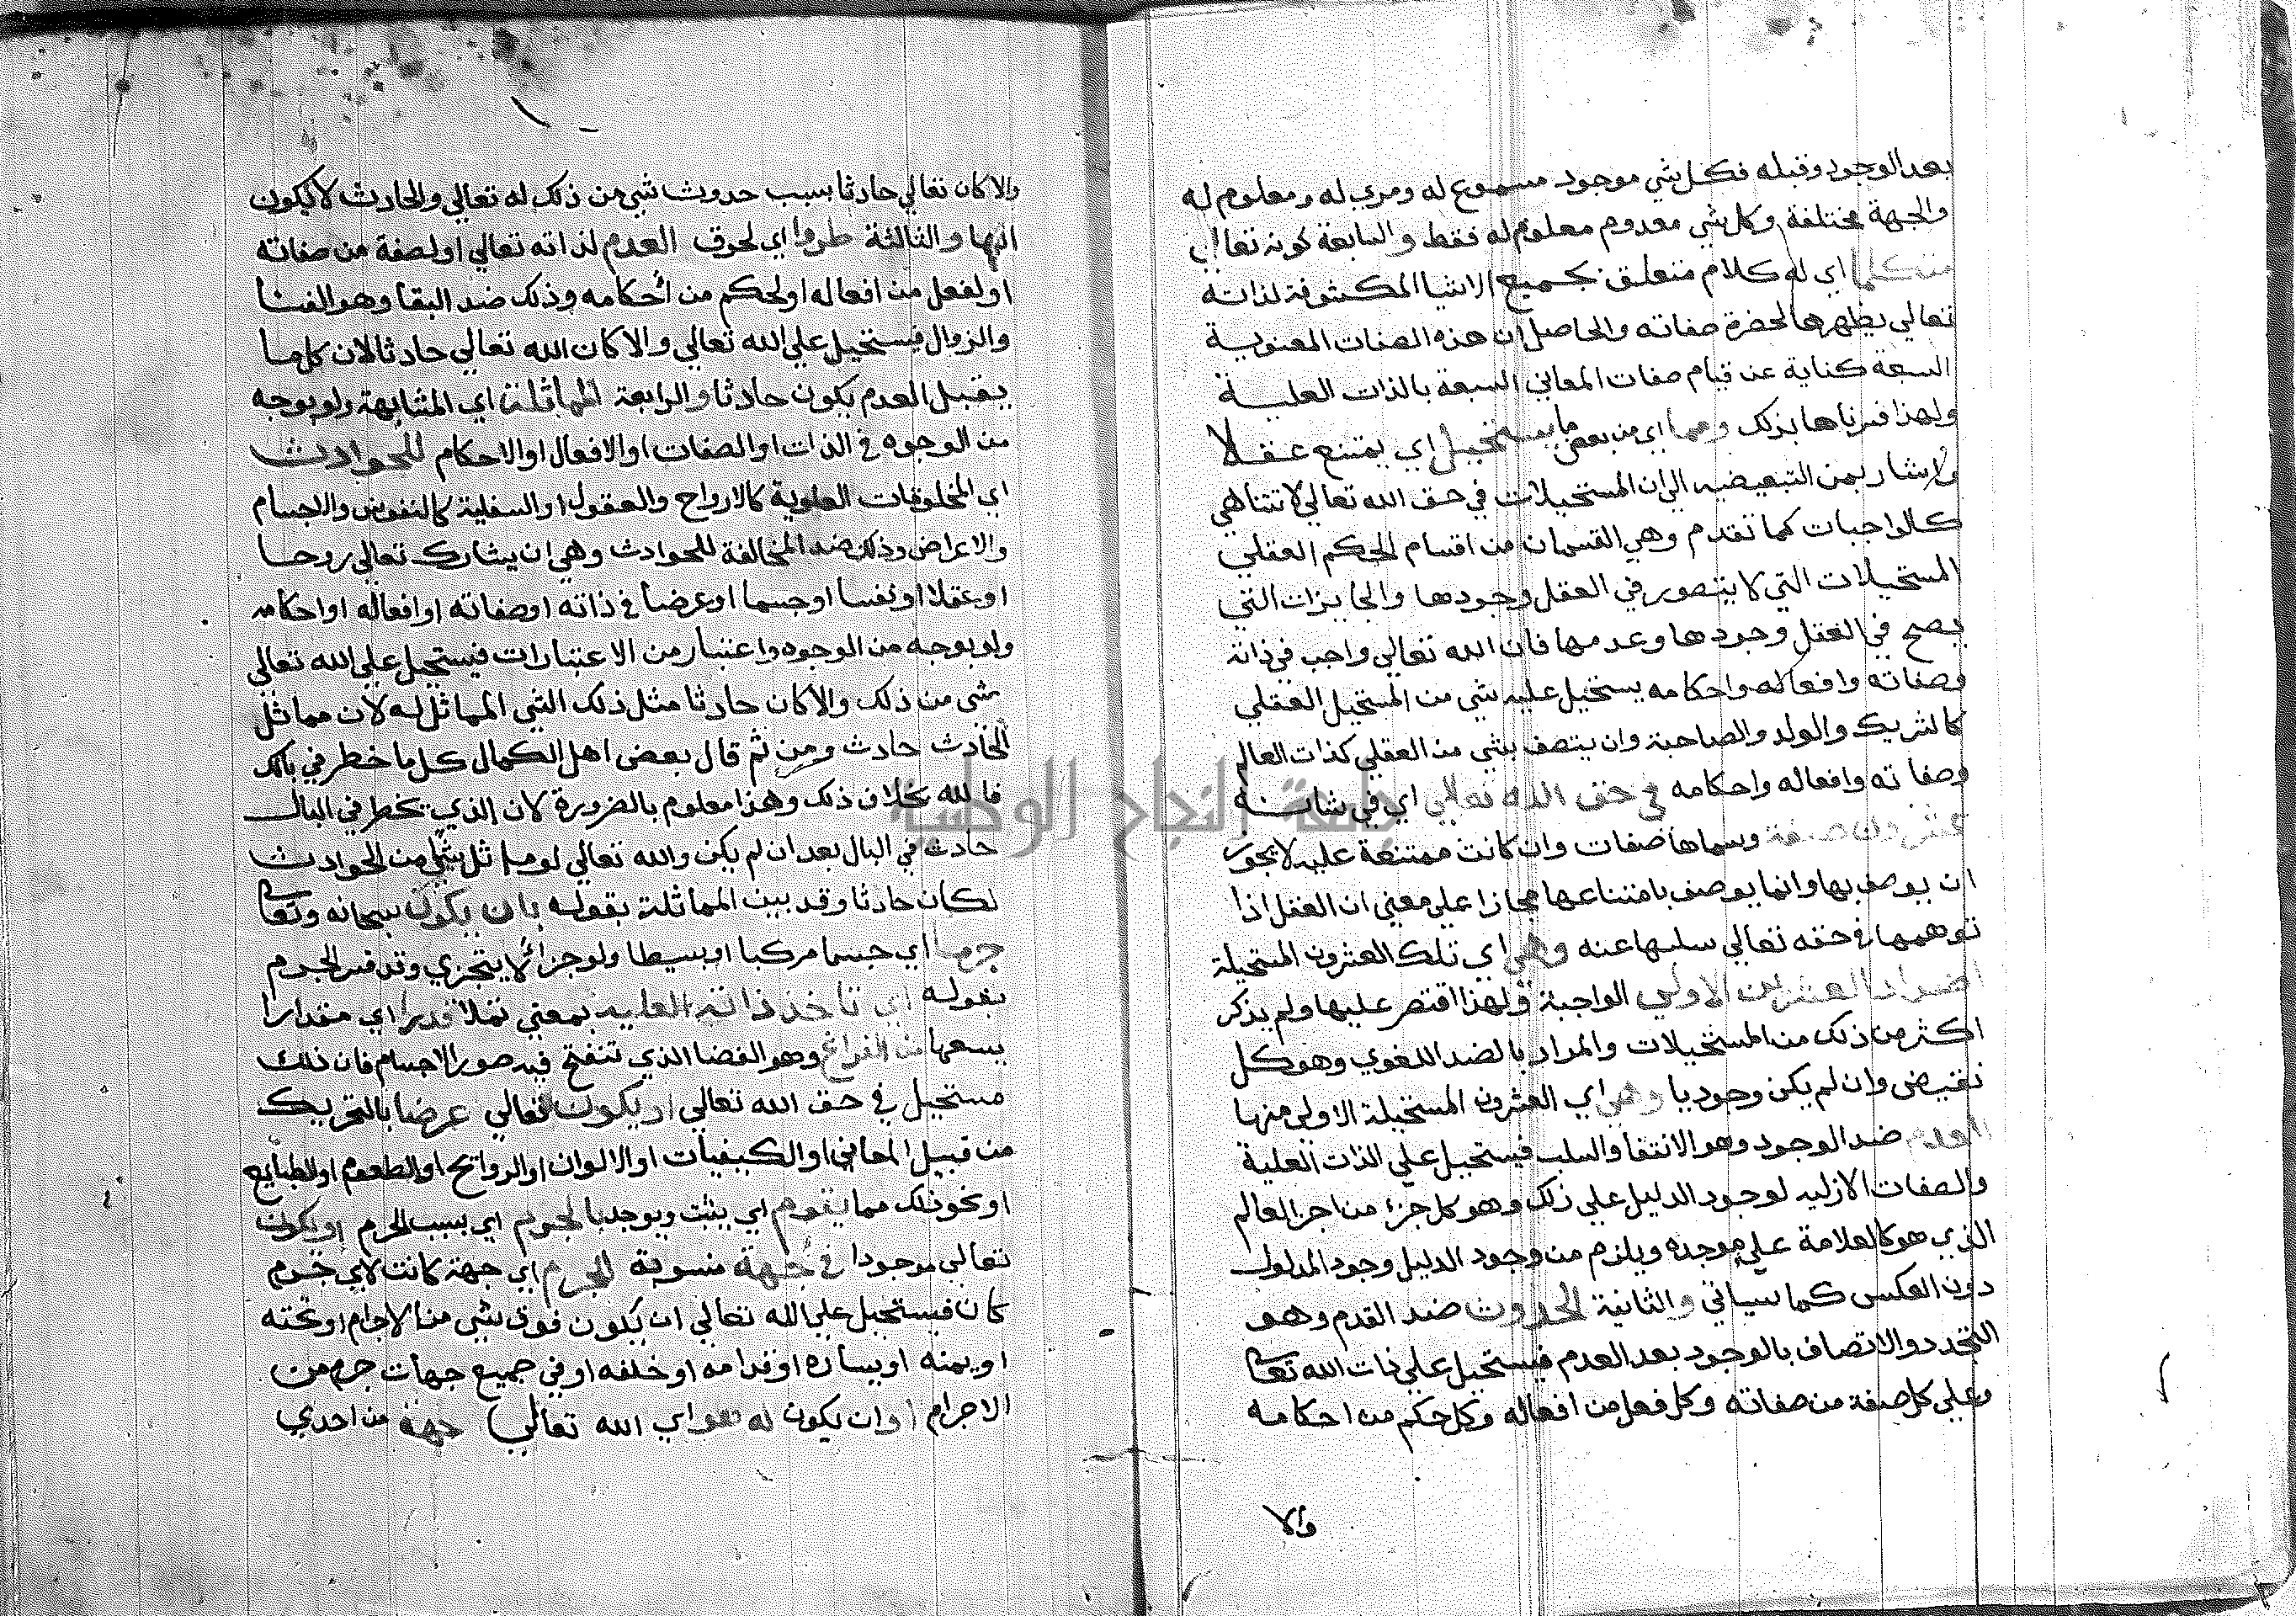 بعد الوجود وقبله فكل شي موجود مسموع له ومري له ومعلوم له
والجهة مختلفة وكل شي معدوم معلوم له فقط والسابعة كونه تعالي
متكلما اي له كلام متعلق بجميع الاشيا المكشوفة لذاته
تعالي يظهرها لحضرة صفاته والحاصل ان هذه الصفات المعنوية
السبعة كناية عن قيام صفات المعاني السبعة بالذات العلية
ولهذا فسرناها بذلك ومما اي من بعض ما يستحيل اي يمتنع عقلا
واشار بمن التبعيضيه الي ان المستحيلات في حق الله تعالي لا تتناهي
كالواجبات كما تقدم وهي القسمان من اقسام الحكم العقلي
المستحيلات التي لا يتصور في العقل وجودها والجايزات التي
يصح في العقل وجودها وعدمها فان الله تعالي واجب في ذاته
وصفاته وافعاله واحكامه يستحيل عليه شي من المستحيل العقلي
كالشريك والولد والصاحبة وان يتصف بشي من العقلي كذات العالم
وصفاته وافعاله واحكامه في حق الله تعالي اي في شانه
عشرون صفة وسماها صفات وان كانت ممتنعة عليه لا يجوز
ان يوصف بها وانما يوصف بامتناعها مجازا علي معني ان العقل اذا
توهمها في حقه تعالي سلبها عنه وهي اي تلك العشرون المستحيلة
اضداد العشرين الاولي الواجبة ولهذا اقتصر عليها ولم يذكر
اكثر من ذلك من المستحيلات والمراد بالضد اللغوي وهو كل
نقيض وان لم يكن وجوديا وهي اي العشرون المستحيلة الاولي منها
العدم ضد الوجود وهو الانتفا والسلب فيستحيل علي الذات العلية
والصفات الازليه لوجود الدليل علي ذلك وهو كل جزء من اجزا العالم
الذي هو كالعلامة علي موجده ويلزم من وجود الدليل وجود المدلول
دون العكس كما سياتي والثانية الحدوث ضد القدم وهو
التجدد والاتصاف بالوجود بعد العدم فيستحيل علي ذات الله تعا
وعلي كل صفة من صفاته وكل فعل من افعاله وكل حكم من احكامه
والا
والا كان تعالي حادثا بسبب حدوث شي من ذلك له تعالي والحادث لا يكون
الها والثالثة طروا اي لحوق العدم لذاته تعالي او لصفة من صفاته
او لفعل من افعاله او لحكم من احكامه وذلك ضد البقا وهو الفنا
والزوال فيستحيل علي الله تعالي والا كان الله تعالي حادثا لان كل ما
يقبل العدم يكون حادثا والرابعة المماثلة اي المشابهة ولو بوجه
من الوجوه في الذات او الصفات او الافعال او الاحكام للحوادث
اي المخلوقات العلوية كالارواح والعقول او السفلية كالنفوس والاجسام
والاعراض وذلك ضد المخالفة للحوادث وهي ان يشارك تعالي روحا
او عقلا او نفسا او جسما او عرضا في ذاته او صفاته او افعاله او احكامه
ولو بوجه من الوجوه واعتبار من الاعتبارات فيستحيل علي الله تعالي
شي من ذلك والا كان حادثا مثل ذلك الشي المماثل له لان مماثل
الحادث حادث ومن ثم قال بعض اهل الكمال كل ما خطر في بالك
فالله بخلاف ذلك وهذا معلوم بالضرورة لان الذي يخطر في البال
حادث في البال بعد ان لم يكن والله تعالي لو ماثل شيا من الحوادث
لكان حادثا وقد بين المماثلة بقوله بان يكون سبحانه وتعا
جرما اي جسما مركبا او بسيطا ولو جزا لا يتجزي وقد فسر الجرم
بقوله اي تاخذ ذاته العلية بمعني تملا قدرا اي مقدارا
يسعها من الفراغ وهو الفضا الذي تنفتح فيه صور الاجسام فان ذلك
مستحيل في حق الله تعالي او يكون تعالي عرضا بالتحريك
من قبيل المعاني او الكيفيات او الالوان او الروائح او الطعوم او الطبايع
او نحو ذلك مما يقوم اي يثبت ويوجد بالجرم اي بسبب الجرم او يكون
تعالي موجودا في جهة منسوبة للجرم اي جهة كانت لاي جرم
كان فيستحيل علي الله تعالي ان يكون فوق شي من الاجرام او تحته
او يمنه او يساره او قدامه او خلفه او في جميع جهات جرم من
الاجرام او ان يكون له هو اي الله تعالي جهة من احدي
جامعة النجاح الوطنية